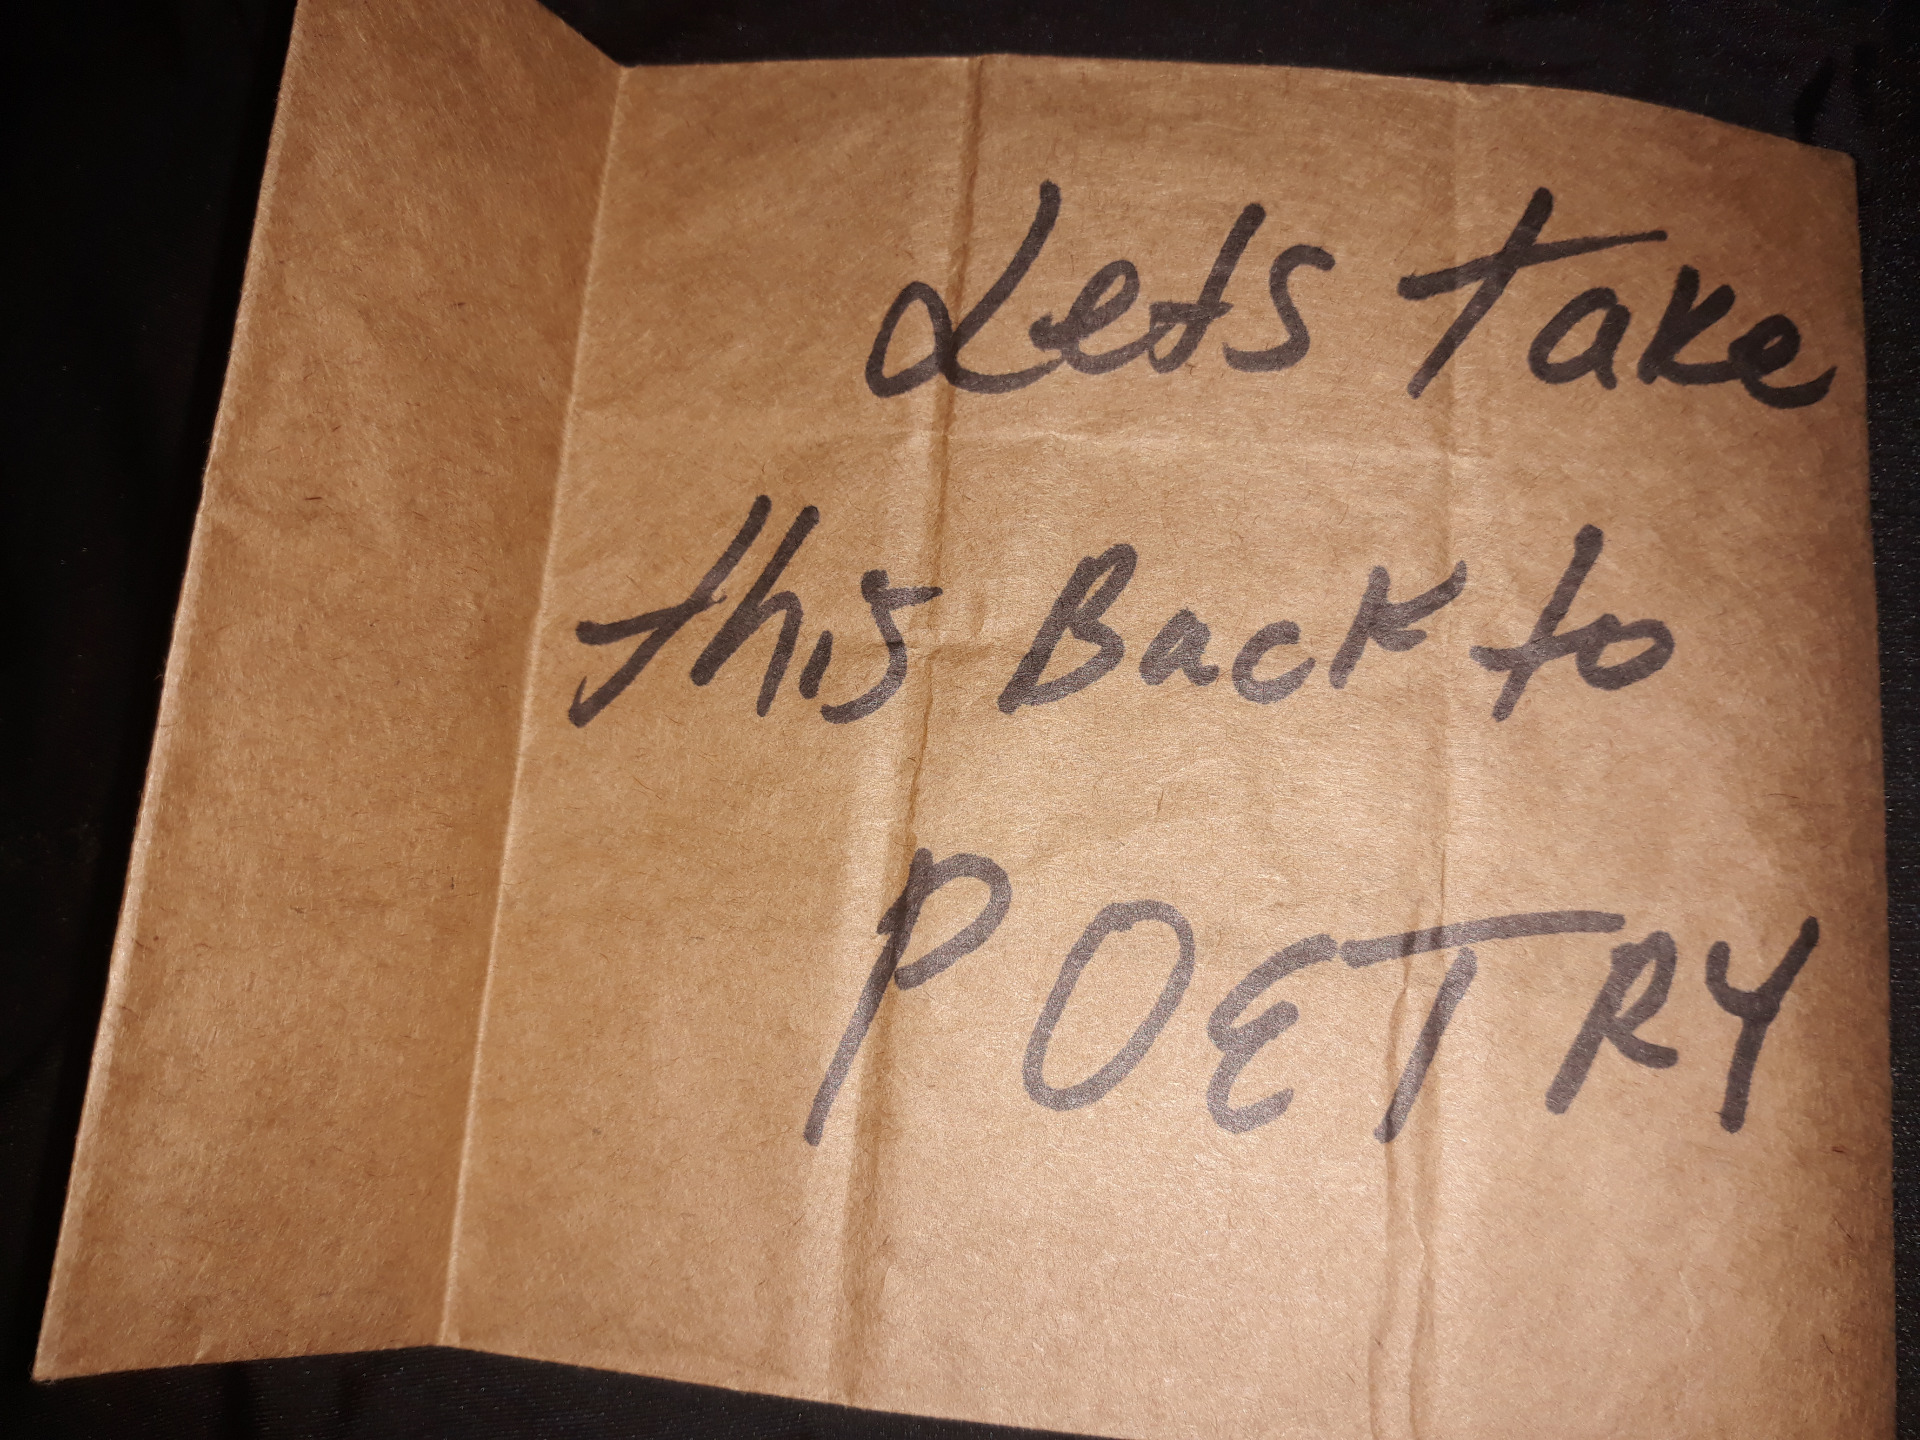 Lets Take
this Back to
POETRY